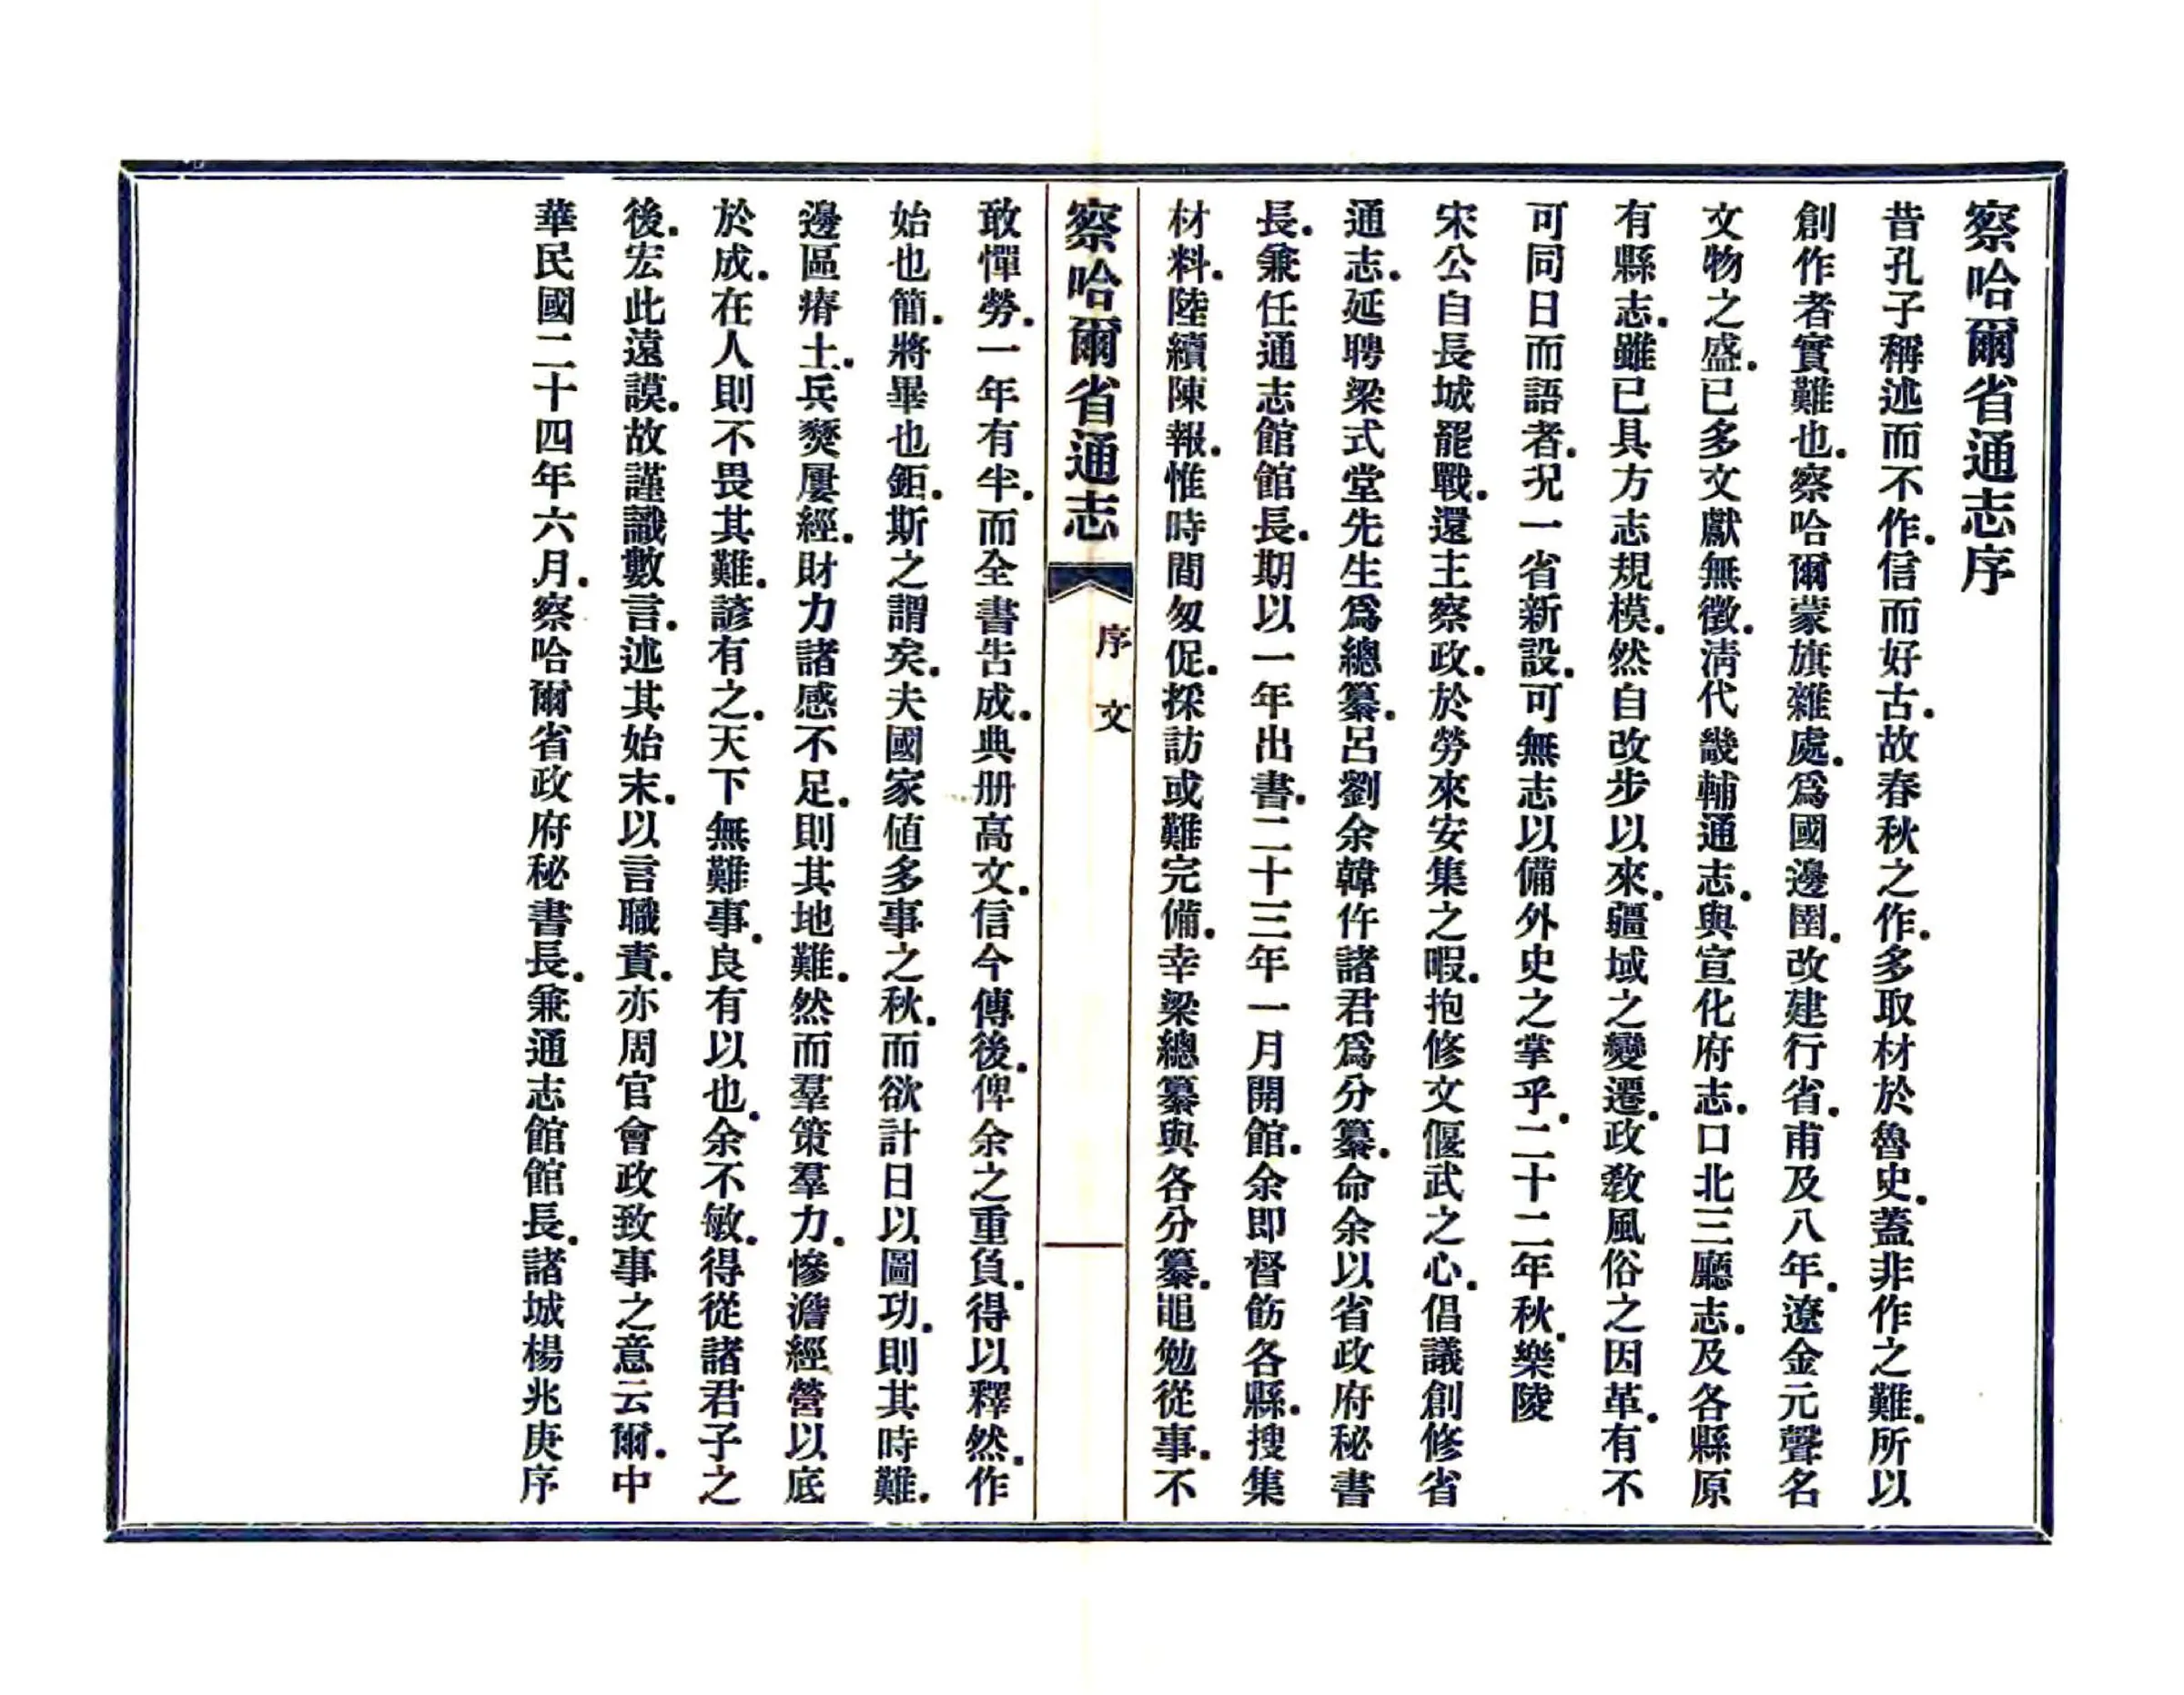 察哈爾省通志序
昔孔子稱述而不作.信而好古.故春秋之作.多取材於魯史.蓋非作之難.所以
創作者實難也.察哈爾蒙旗雜處.爲國邊圉.改建行省.甫及八年.遼金元聲名
文物之盛.已多文獻無徵.淸代畿輔通志.與宣化府志.口北三廳志.及各縣原
有縣志.雖已具方志規模.然自改步以來.疆域之變遷.政敎風俗之因革.有不
可同日而語者.況一省新設.可無志以備外史之掌乎.二十二年秋.樂陵
宋公自長城罷戰.還主察政.於勞來安集之暇.抱修文偃武之心.倡議創修省
通志.延聘梁式堂先生爲總纂.呂劉余韓仵諸君爲分纂.命余以省政府秘書
長.兼任通志館館長.期以一年出書.二十三年一月開館.余即督飭各縣.搜集
材料.陸續陳報.惟時間匆促.採訪或難完備.幸梁總纂與各分纂.黽勉從事.不
察哈爾省通志
序文
一
敢憚勞.一年有半.而全書告成.典册高文.信今傳後.俾余之重負.得以釋然.作
始也簡.將畢也鉅.斯之謂矣.夫國家値多事之秋.而欲計日以圖功.則其時難.
邊區瘠土.兵燹屢經.財力諸感不足.則其地難.然而羣策羣力.慘澹經營以底
於成.在人則不畏其難.諺有之.天下無難事.良有以也.余不敏.得從諸君子之
後.宏此遠謨.故謹識數言.述其始末.以言職責.亦周官會政致事之意云爾.中
華民國二十四年六月.察哈爾省政府秘書長.兼通志館館長.諸城楊兆庚序